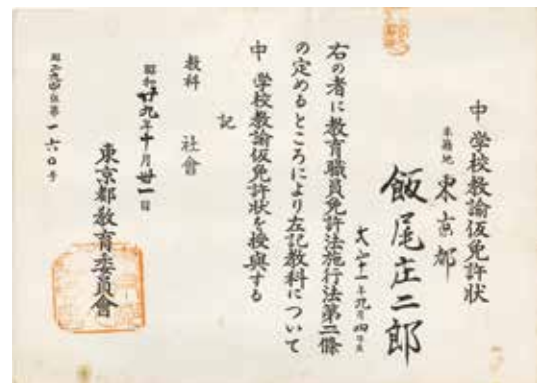 中学校教諭仮免許状
本籍地 東京都
飯尾庄二郎
大正十一年九月四日生
右の者に教育職員免許法施行法第二條
の定めるところにより左記教科について
中学校教諭仮免許状を授與する
記
教科 社會
昭和廿九年十月廿一日
東京都教育委員會
第一六〇号